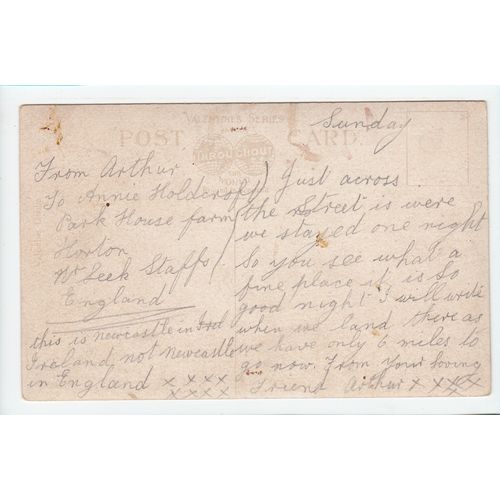 VALENTINES SERIES
POST CARD
THROUGHOUT
THE
WORLD
Sunday
From Arthur
To Annie Holdcroft
Park House farm
Horton
Nr Leek Staffs
England
this is newcastle in Ird
Ireland not newcastle
in England x x x x
x x x x
Just across
the Street is were
we stayed one night
So you see what a
fine place it is So
good night I will write
when we land there as
we have only 6 miles to
go now. From Your loving
Friend Arthur x x x x
x